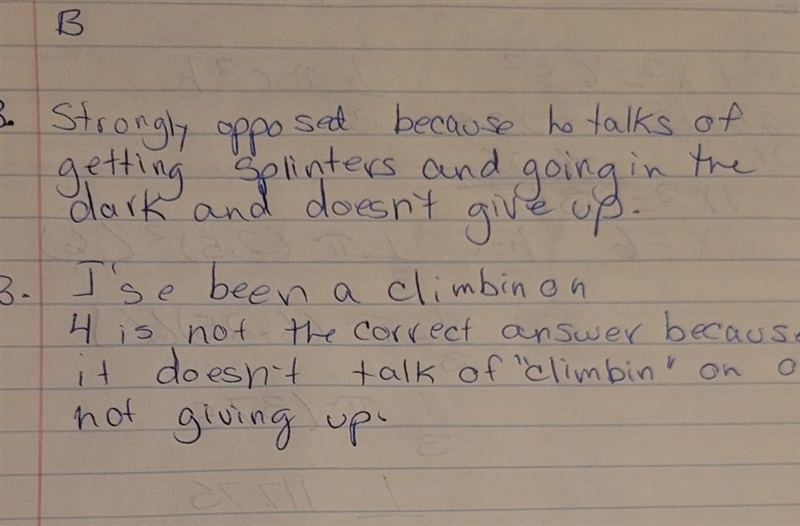 B
3. Strongly opposed because ho talks of
getting splinters and going in the
dark and doesn't give up.
3. I'se been a climbin on
4 is not the correct answer because
it doesn't talk of "climbin" on o
not giving up.